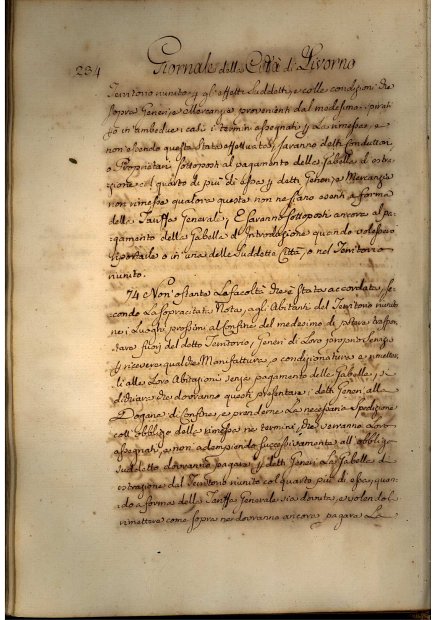 234 Giornale della Città di Livorno
Territorio riunito per gl'effetti suddetti, e colle condizioni di
sopra Generi, e Mercanzie provenienti dal medesimo: spirati
in ambedue i casi i termini assegnati per La rimessa, e
non essendo questa stata effettuata, saranno detti Conduttori,
o Proprietari sottoposti al pagamento della Gabella d'estra-
zione col quarto di più di essa per detti Generi, e Mercanzie
non rimesse qualora queste non ne siano esenti a forma
della Tariffa Generale, E saranno sottoposti ancora al pa-
gamento della Gabella d'Introduzione quando volessero
riportarle o in una delle suddette Città, o nel Territorio
riunito.
74 Non ostante La facoltà che è stata accordata, se-
condo La sopracitata Nota, agl'Abitanti del Territorio riunito
nei Luoghi prossimi al Confine del medesimo di potere traspor-
tare fuori del detto Territorio, Generi di Loro proprio servizio
per ricevere qualche Manifattura, o condizionatura e rimetter-
li alle Loro Abitazioni senza pagamento della Gabella, si
dichiara che dovranno questi presentare i detti Generi alla
Dogana di Confine, e prenderne La necessaria spedizione
coll'obbligo della rimessa nei termini, che verranno Loro
assegnati, e non adempiendo successivamente all'obbligo
suddetto dovranno pagare per detti Generi La Gabella d'
estrazione dal Territorio riunito col quarto più di essa quan-
do a forma della Tariffa Generale sia dovuta, e volendoli
rimettere come sopra ne dovranno ancora pagare La